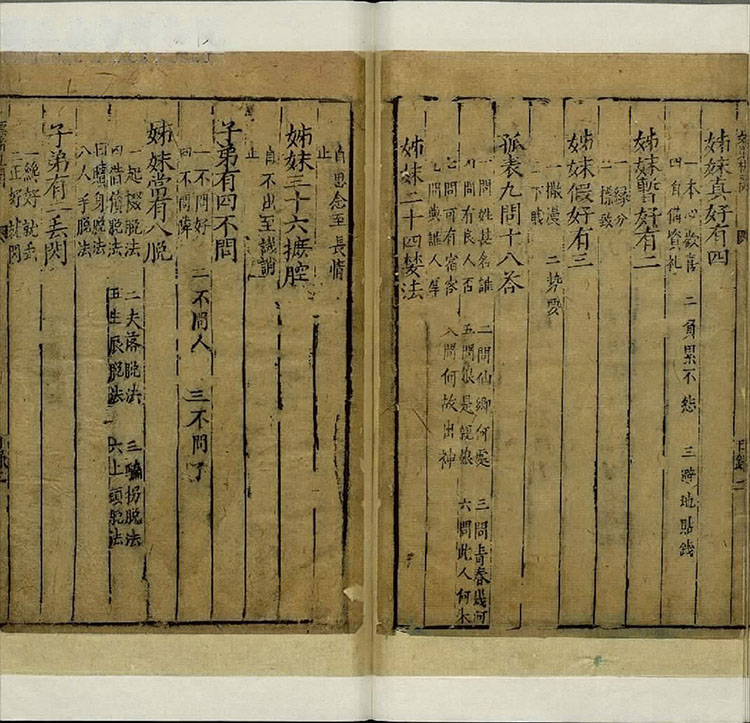 姊妹真好有四
一本心歡喜 二負累不怨 三避地貼錢
四自備資礼
姊妹暫好有二
一緣分
二標致
姊妹假好有三
一撒漫 二勢要
三下戝
孤表九問十八荅
一問姓甚名誰 二問仙鄉何處 三問青春幾何
四問有良人否 五問娘是親娘 六問此人何木
七問可有宿客 八問何故出神
九問與誰人厚
姊妹二十四婪法
自思念至長情
止
姊妹三十六腔
自不出至譏誚
止
子弟有四不問
一不問好 二不問人 三不問了
四不問
姊妹當有八脫
一起掇脫法 二夫落脫法 三騙拐脫法
四借債脫法 五生辰脫法 六上頭脫法
七贖身脫法
八人手脫法
子弟有二丢閃
一絕好就丢
二正好討閃
目錄二